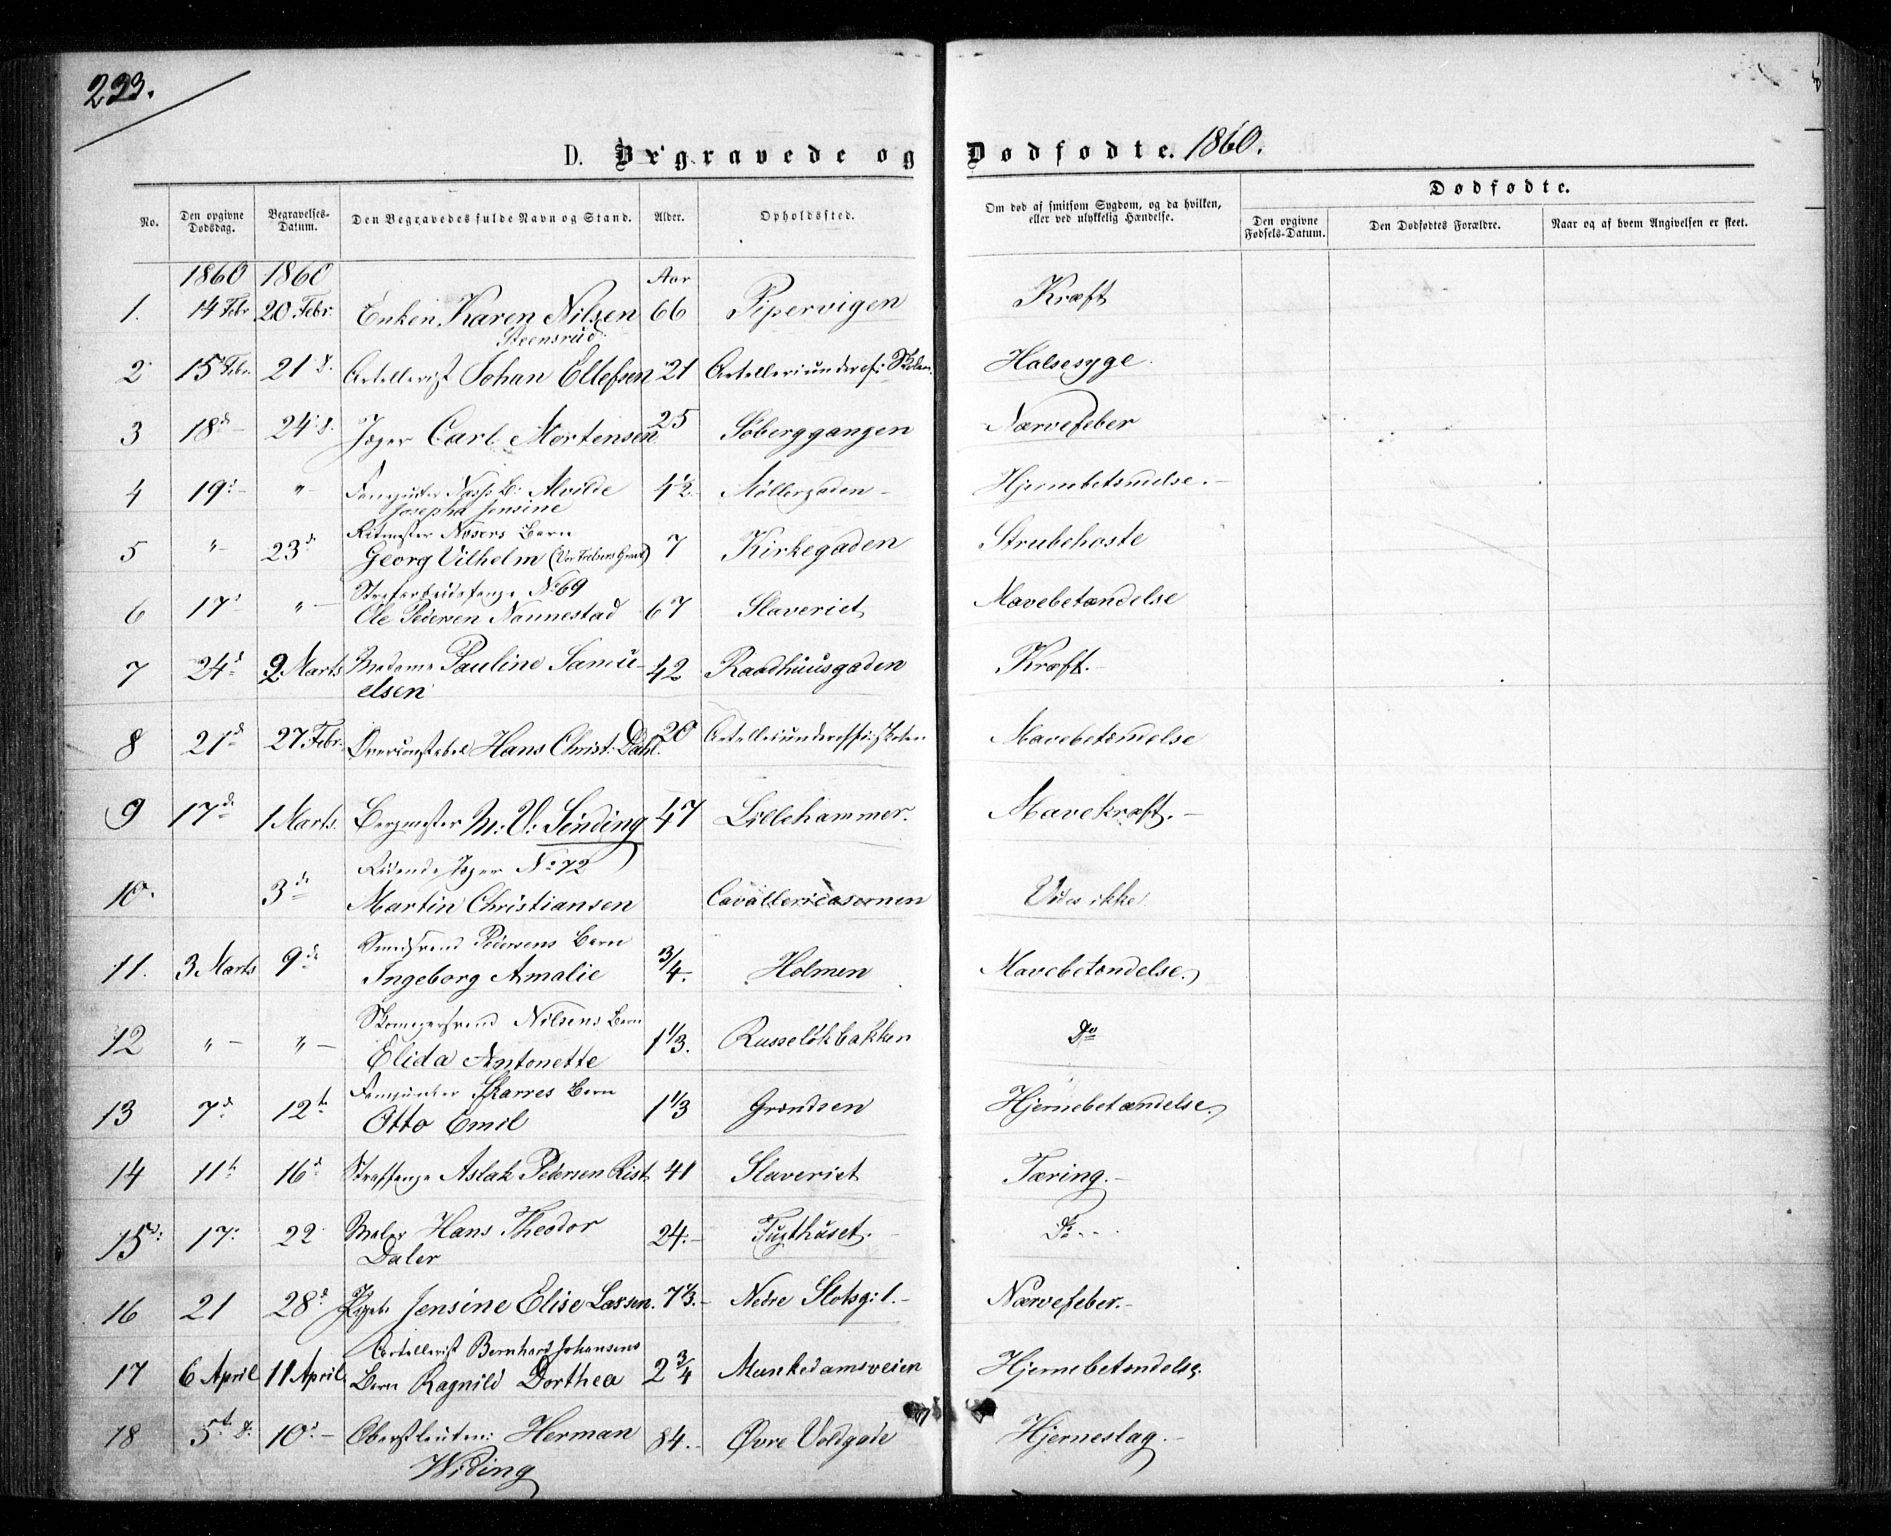 233.
D. Begravede og Dødfødte. 1860.
No.
Den opgivne Dødsdag.
Begravelses-Datum.
Den Begravedes fulde Navn og Stand.
Alder.
Opholdssted.
Om død af smitsom Sygdom, og da hvilken, eller ved ulykkelig Hændelse.
Dødfødte.
Den opgivne Fødsels-Datum.
Den Dødfødtes Forældre.
Naar og af hvem Angivelsen er skeet.
1860 1860 Aar
1. 14 Febr 20 Febr. Enken Karen Nilsen 66 Pipervigen Kræft
Steensrud
2 15 Febr. 21 d. Artellerist Johan Ellefsen 21 Artelleriunderof: Skolen Halsesyge
3 18 d 24 d. Jæger Carl Mortensen 25 Søberggangen Nærvefeber
4 19 d " Fanejunker Alvilde 4½ Møllergaden Hjernebetændelse.
Josepha Jensine
5 " 23 d Ritmester Nesers Barn
Georg Vilhelm 7 Kirkegaden Strubehoste
6 17 d " Strafarbeidsfange No 69
Ole Pedersen Nannestad 67 Slaveriet Mavebetændelse
7 24 d 2 Marts Madame Pauline Samu- 42 Raadhuusgaden Kræft.
elsen
8 21 d 27 Febr. Overconstabel Hans Christ: Dahl. 20 Artelleriunderoffi: skolen Mavebetændelse
9 17 d 1 Marts. Bergmester M: V: Sinding 47 Lillehammer. Mavekræft.
10. 3 d Ridende Jæger No 72
Martin Christiansen Cavallericasernen Vides ikke
11. 3 Marts 9 d Pedersens Barn
Ingeborg Amalie 3/4. Holmen Mavebetændelse.
12 " " Skomagersvend Nilsens Barn
Elida Antonette 1 1/3. Russeløkbakken Do
13 7 d 12 te Fanejunker Skarres Barn
Otto Emil 1 1/3 Grændsen Hjernebetændelse.
14 11 te 16 d Straffange Aslak Pedersen Rist 41 Slaveriet Tæring.
15 17 22 Maler Hans Theodor 24. Tugthuset. Do
Daler
16 21 28 d Jensine Elise Larsen. 7 1/3. Nedre Slotsg: 1. Nærvefeber.
17 6 April 11 April Artellerist Bernhard Johansens
Barn Ragnild Dorthea 2 3/4 Munkedamsveien Hjernebetændelse.
18 5 t d. 10 d Oberstleutn: Herman 84. Øvre Voldgade Hjerneslag.
Widing